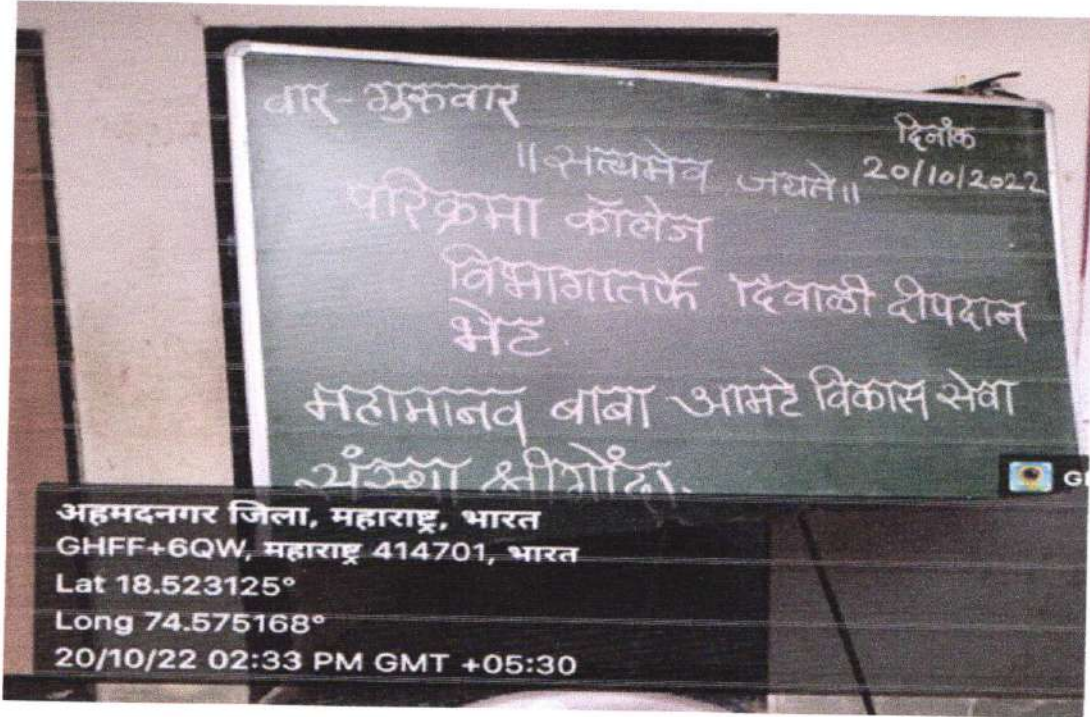 वार - गुरुवार
दिनांक
20/10/2022
॥ सत्यमेव जयते ॥
परिक्रमा कॉलेज
विभागातर्फे दिवाळी दीपदान
भेट.
महामानव बाबा आमटे विकास सेवा
संस्था श्रीगोंदा.
अहमदनगर जिला, महाराष्ट्र, भारत
GHFF+6QW, महाराष्ट्र 414701, भारत
Lat 18.523125°
Long 74.575168°
20/10/22 02:33 PM GMT +05:30